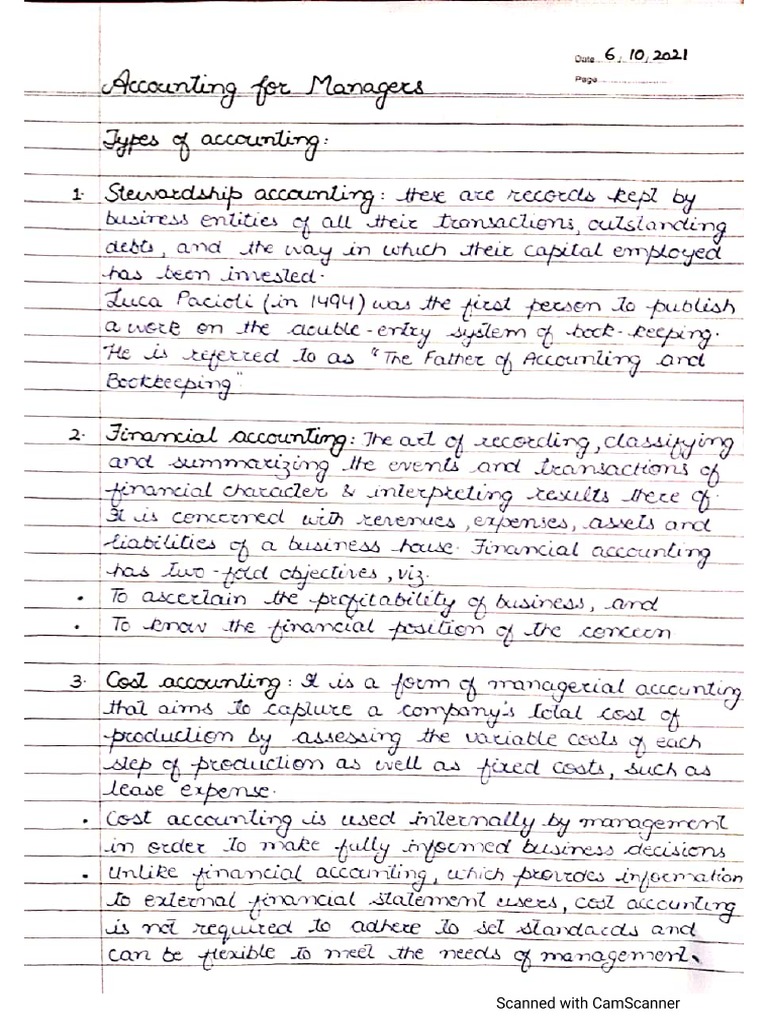 Date 6, 10, 2021
Page
Accounting for Managers
Types of accounting:
1. Stewardship accounting: these are records kept by
business entities of all their transactions, outstanding
debts, and the way in which their capital employed
has been invested.
Luca Pacioli (in 1494) was the first person to publish
a work on the double-entry system of book-keeping.
He is referred to as "The Father of Accounting and
Bookkeeping"
2. Financial accounting: The art of recording, classifying
and summarizing the events and transactions of
financial character & interpreting results there of.
It is concerned with revenues, expenses, assets and
liabilities of a business house. Financial accounting
has two-fold objectives, viz.
• To ascertain the profitability of business, and
• To know the financial position of the concern
3. Cost accounting: It is a form of managerial accounting
that aims to capture a company's total cost of
production by assessing the variable costs of each
step of production as well as fixed costs, such as
lease expense.
• Cost accounting is used internally by management
in order to make fully informed business decisions
• Unlike financial accounting, which provides information
to external financial statement users, cost accounting
is not required to adhere to set standards and
can be flexible to meet the needs of management.
Scanned with CamScanner